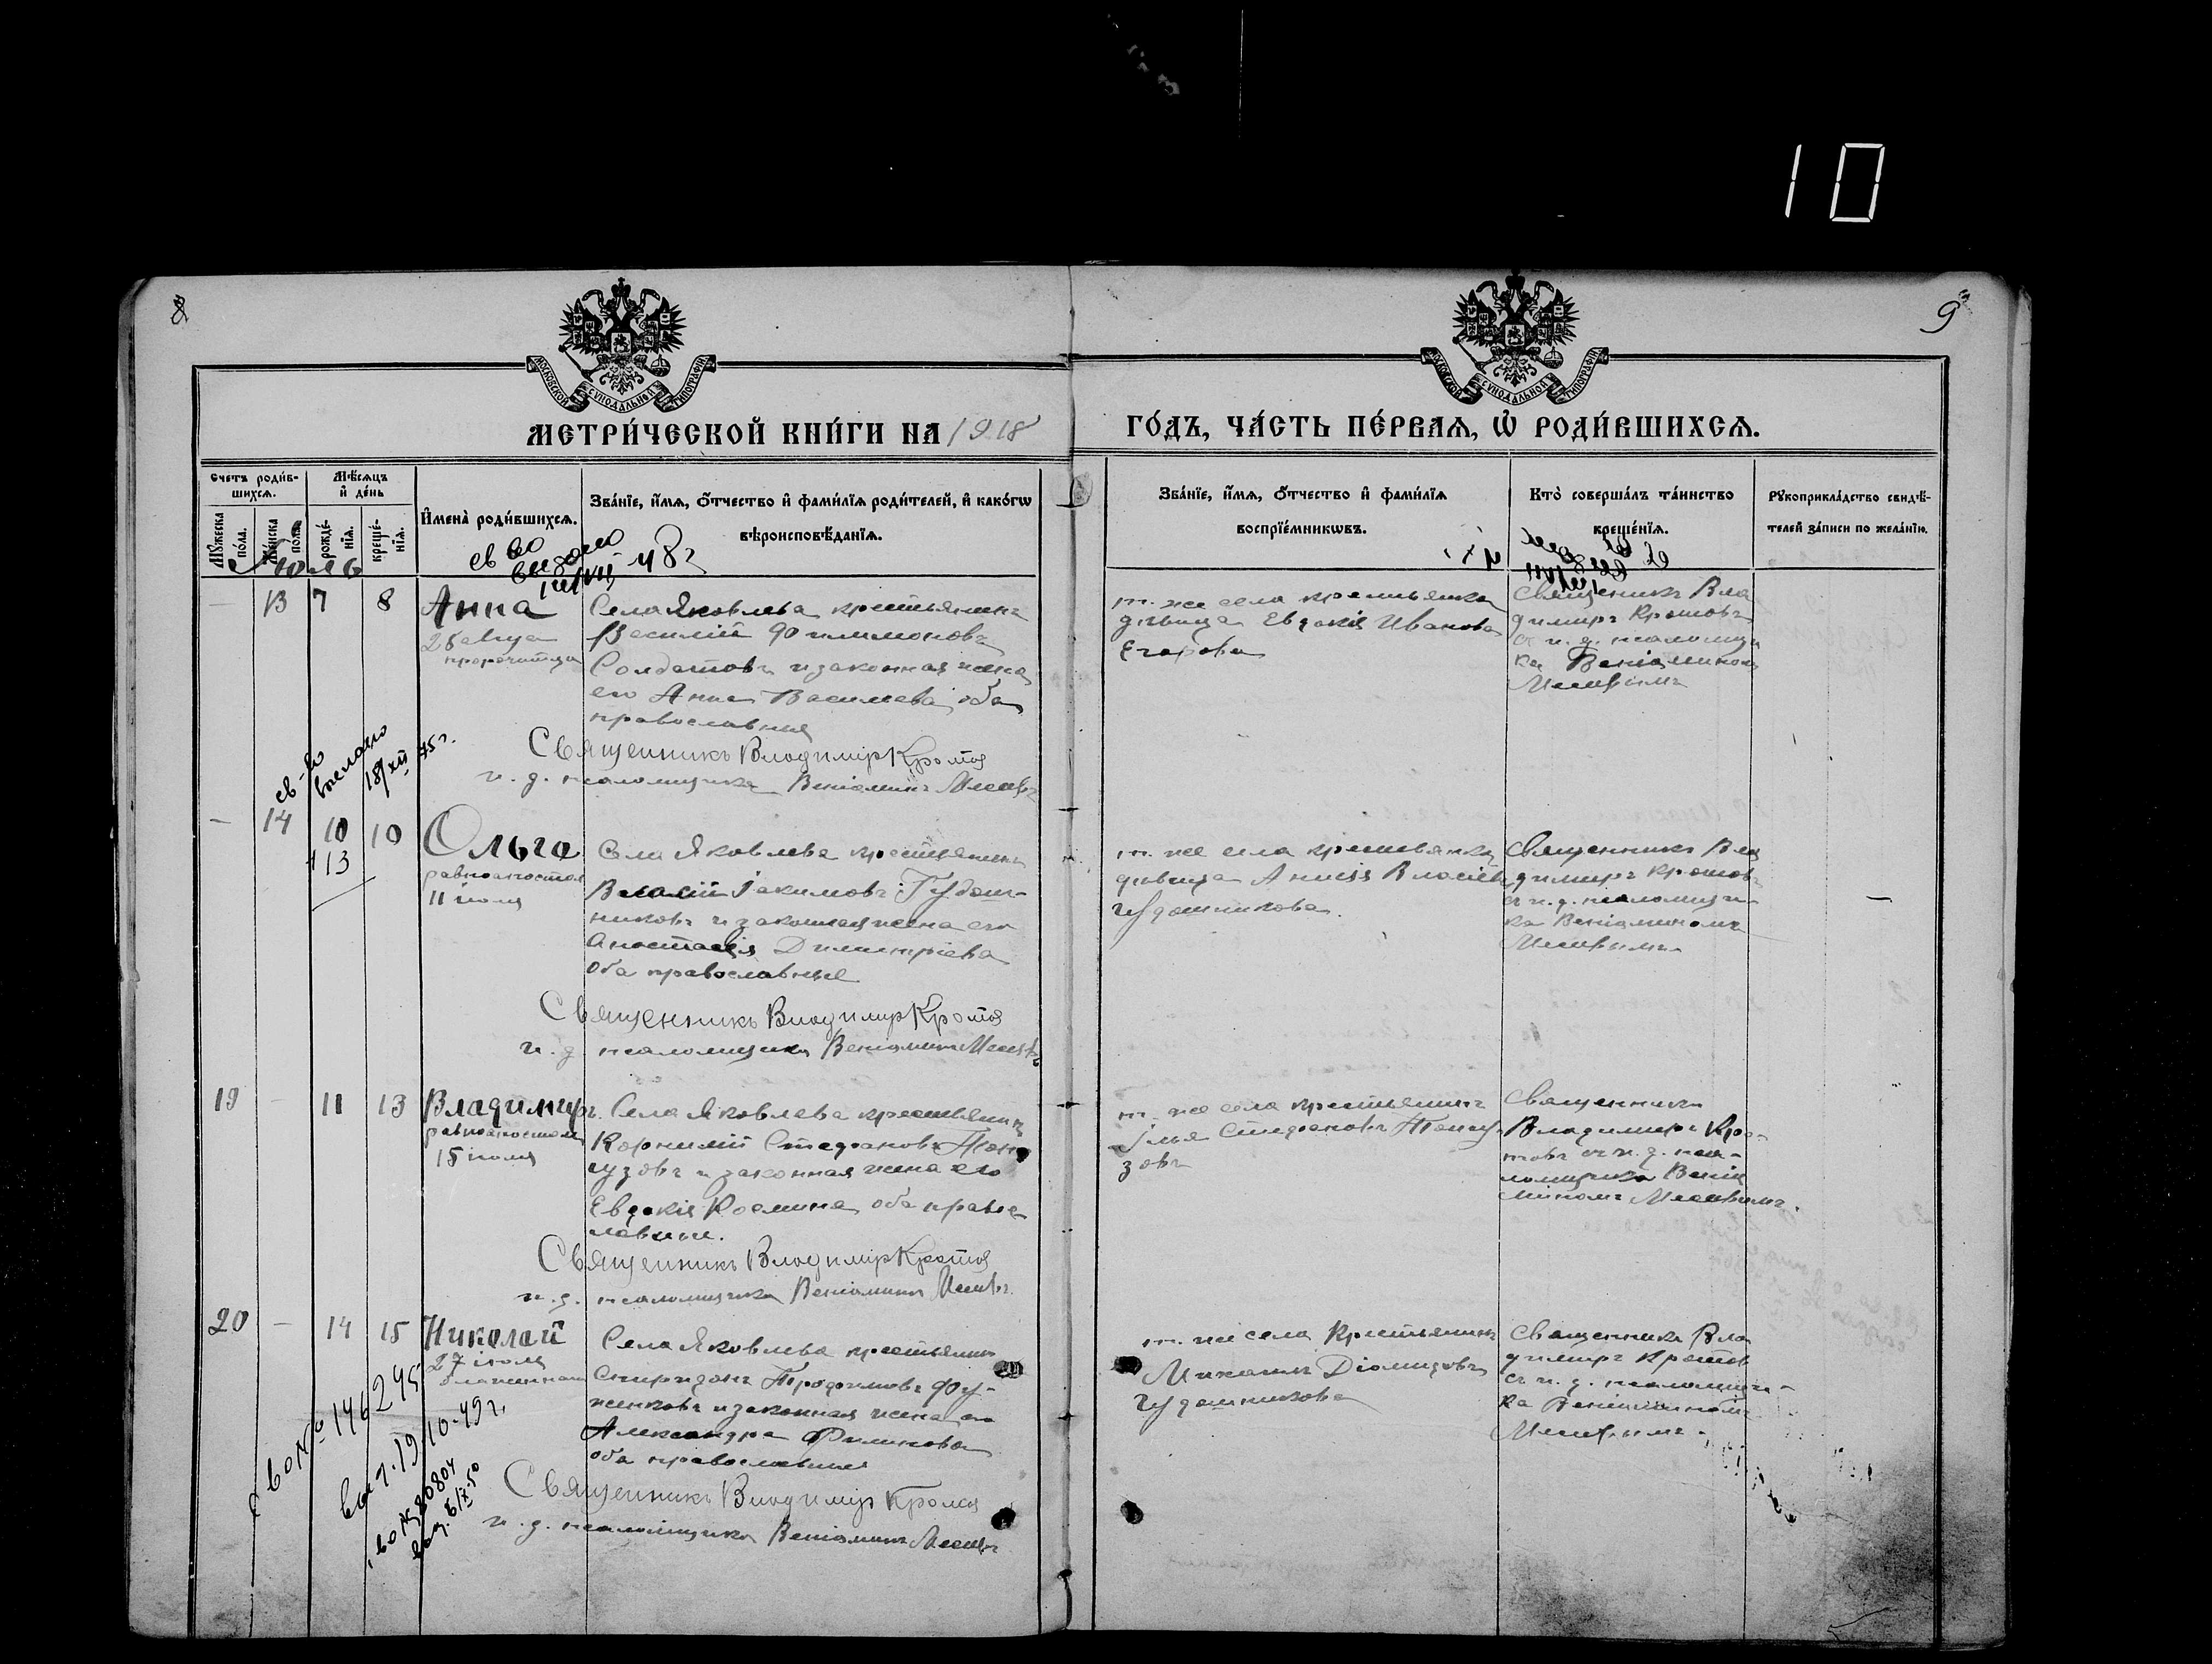 10
8
9
МОСКОВСКОЙ СУНОДАЛЬНОЙ ТИПОГРАФІИ
МОСКОВСКОЙ СУНОДАЛЬНОЙ ТИПОГРАФІИ
МЕТРИ́ЧЕСКОЙ КНИ́ГИ НА 1918
ГО́ДЪ, ЧА́СТЬ ПЕ́РВАѦ, Ѡ҆ РОДИ́ВШИХСѦ.
Счетъ роди́в-
шихсѧ.
Мѣ́сѧцъ
и҆ де́нь
Мꙋ́жеска
по́ла.
Же́нска
пола
рожде́-
нїѧ.
креще́-
нїѧ.
И҆мена̀ роди́вшихсѧ.
Зва́нїе, и҆́мѧ, ѻ҆́тчество и҆ фами́лїѧ роди́телей, и҆ како́гѡ
вѣроисповѣ́данїѧ.
Зва́нїе, и҆́мѧ, ѻ҆́тчество и҆ фами́лїѧ
воспрїе́мникѡвъ.
Кто̀ соверша́лъ та́инство
креще́нїѧ.
Рꙋкоприкла́дство свидѣ́-
телей за́писи по жела́нїю.
Июль
св во
выдано
48 г
— 13 7 8 Анна
пророчица
Села Яковлева крестьянинъ
Василій Филимоновъ
Солдатовъ и законная жена
его Анна Васильева, оба
православныя
Священникъ Владимір Кротов
и. д. псаломщика Веніаминъ
т. же села крестьянка
дѣвица Евдокія Иванова
Егорова
Священникъ Вла
димиръ Кротовъ
съ и. д. псаломщи
ка Веніаминомъ
св-во
выслано
18/XII 75 г.
— 14 10 10 Ольга
+13
равноапостол
11 іюля
Села Яковлева крестьянинъ
Василій Іакимовъ Гудош-
никовъ и законная жена его
Анастасія Димитріева
оба православные
Священникъ Владимір Кротов
и. д. псаломщика Веніаминъ
т. же села крестьянка
дѣвица Анисія
Гудошникова.
Священникъ Вла
димиръ Кротовъ
съ и. д. псаломщи-
ка Веніаминомъ
—
19 — 11 13 Владимиръ
равноапостол
15 іюля
Села Яковлева крестьянинъ
Корнилій Стефановъ
и законная жена его
Евдокія Космина оба право
славные.
Священникъ Владимір Кротов
и. д. псаломщика Веніаминъ
т. же села крестьянинъ
Илья Стефановъ
зовъ
Священникъ
Владимиръ Кро-
товъ съ и. д. пса-
ломщика Веніа
миномъ
20 — 14 15 Николай
27 іюля
Села Яковлева крестьянинъ
Спиридонъ Трофимовъ
и законная жена его
Александра Филипова
оба православные
Священникъ Владимір Кротов
и. д. псаломщика Веніаминъ
т. же села Крестьянинъ
Михаилъ Діомидовъ
Гудошникова
Священникъ Вла
димиръ Кротов
съ и. д. псаломщи-
ка Веніаминомъ
с во № 146245
выд. 19/10-49 г.